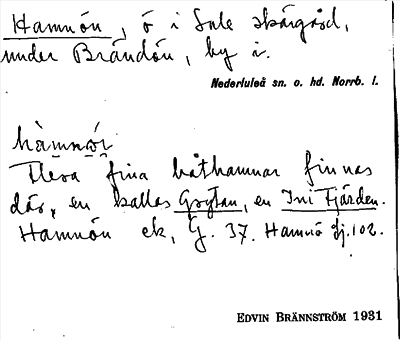 Hamnön, ö i Lule skärgård,
under Brändön, by i.
Nederluleå sn. o. hd. Norrb. l.
hàmnö̀i
Flera fina båthamnar finnas
där, en kallas Grytan, en Ini Fjärden.
Hamnön ek, G. 37. Hamnö dj. 102.
EDVIN BRÄNNSTRÖM 1931